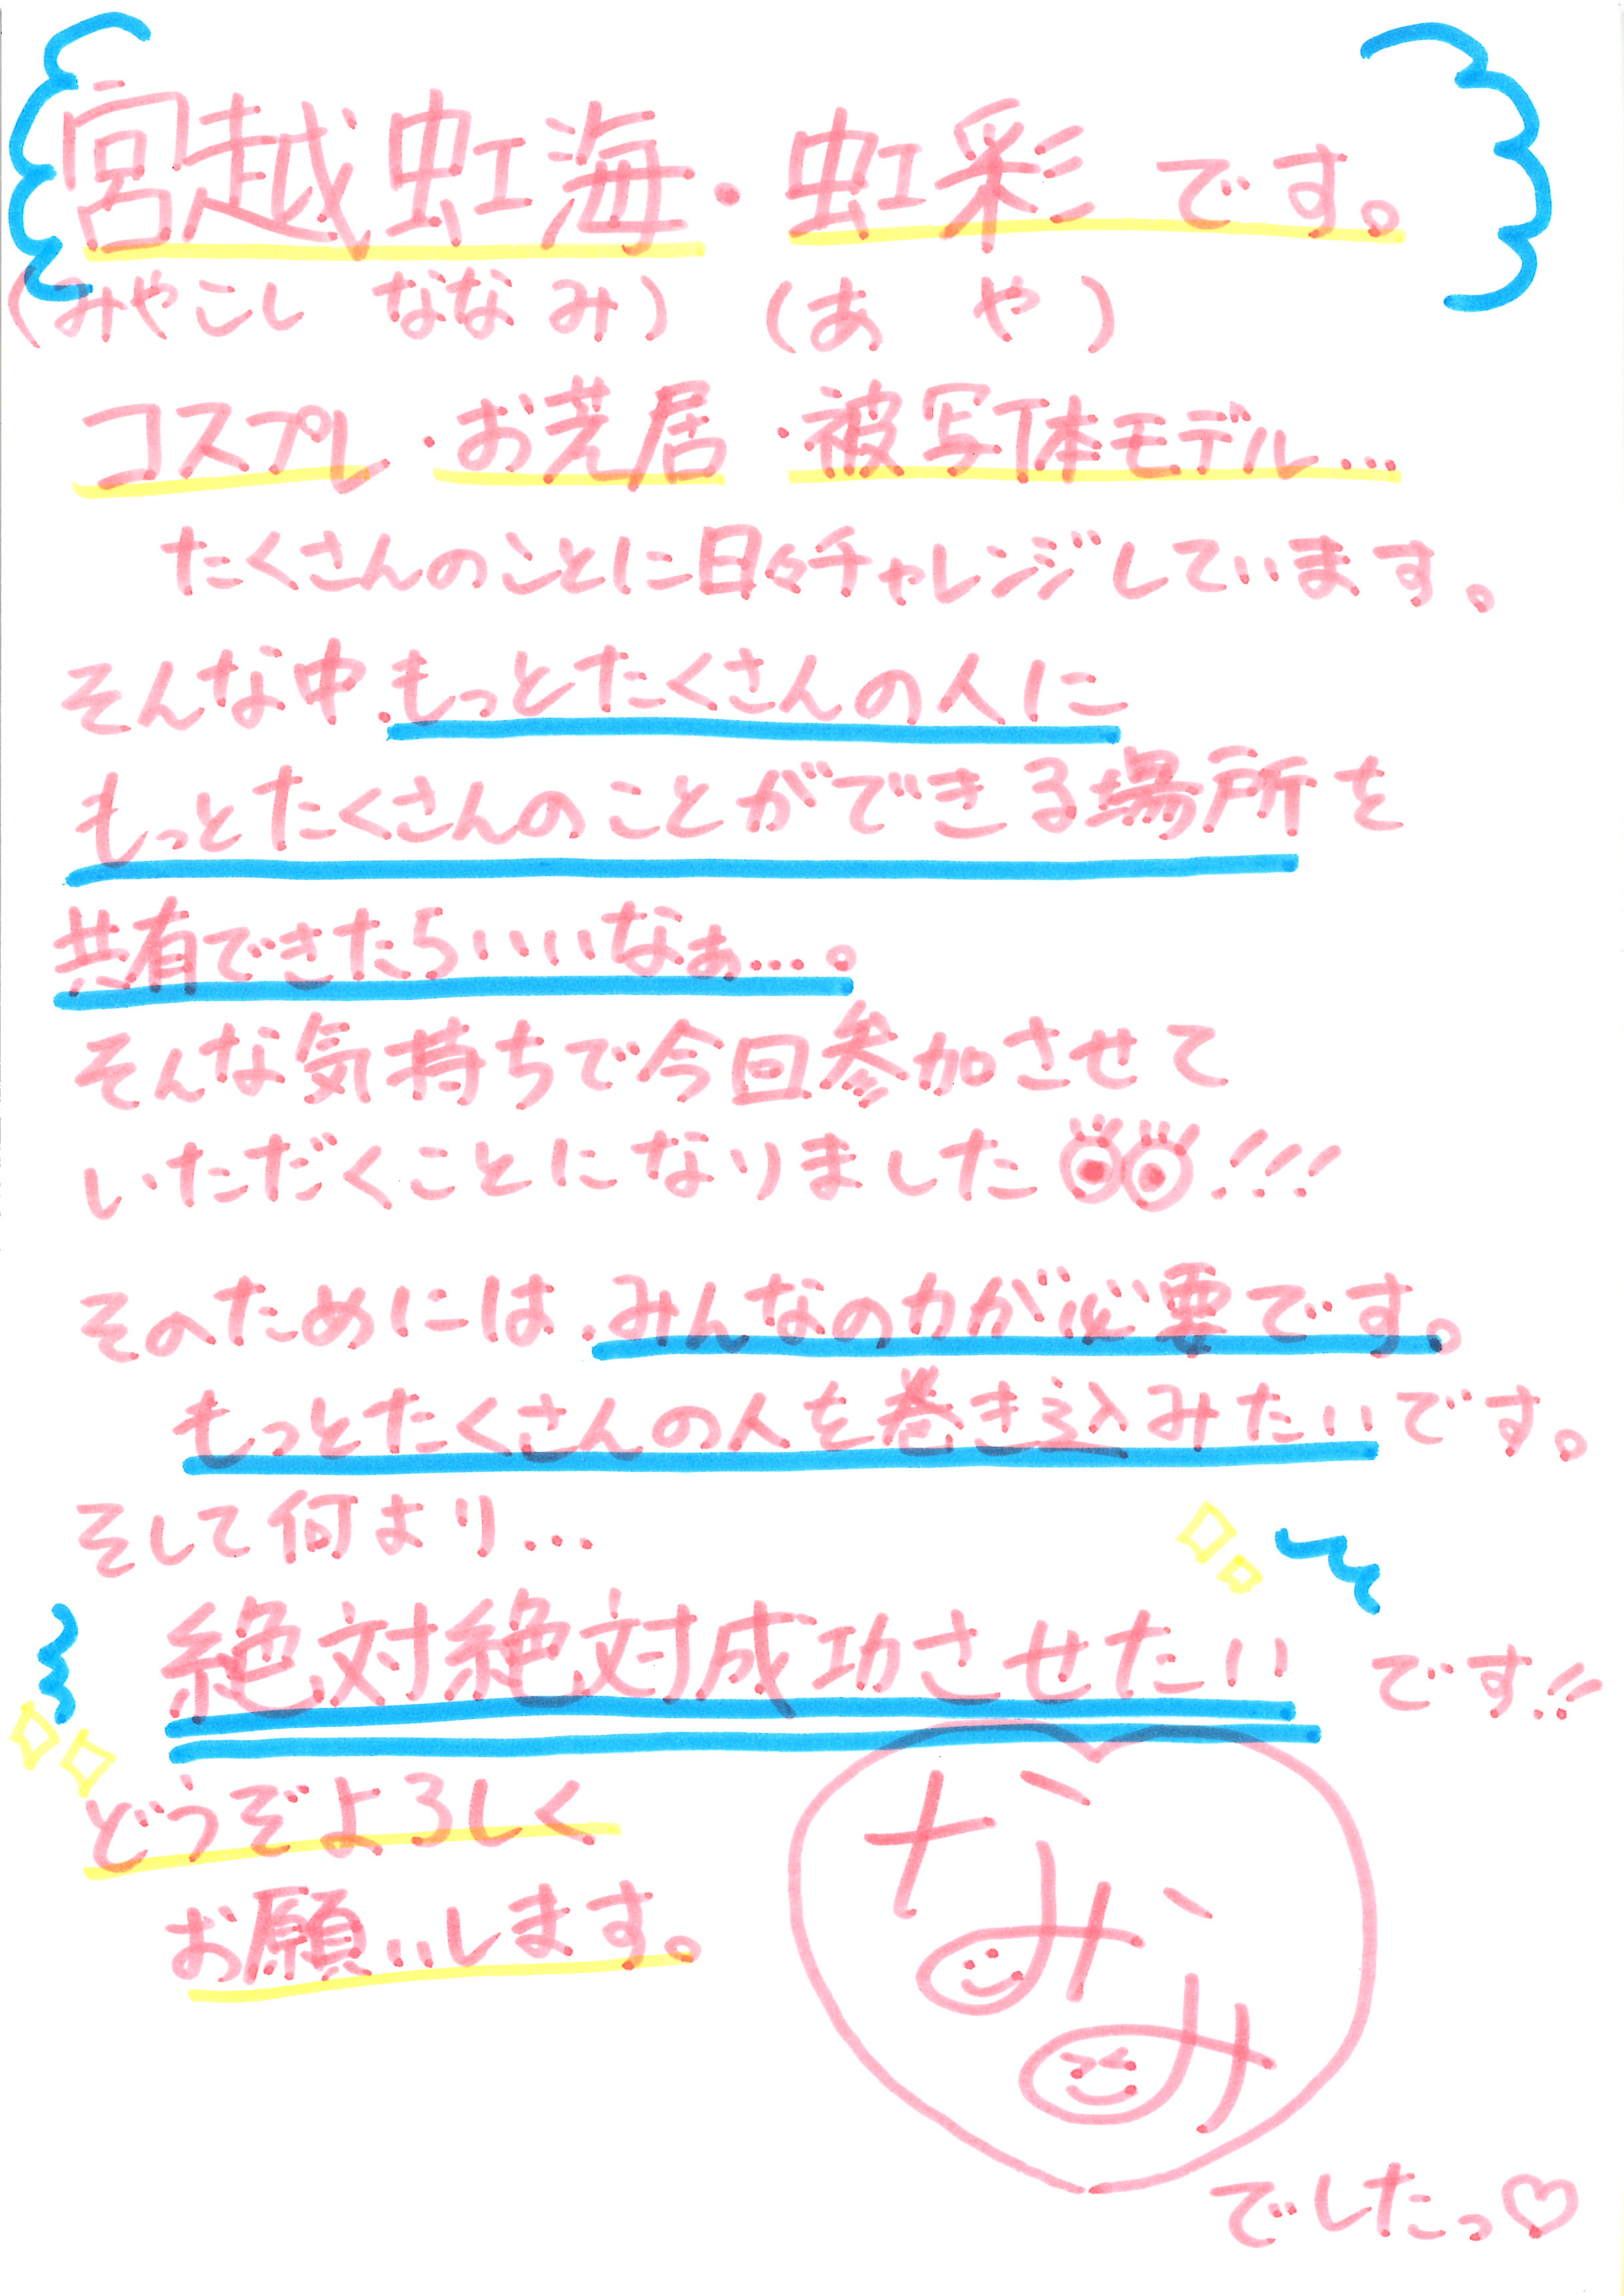 宮越虹海・虹彩です。
(みやこし ななみ) (あや)
コスプレ・お芝居・被写体モデル…
たくさんのことに日々チャレンジしています。
そんな中、もっとたくさんの人に
もっとたくさんのことができる場所を
共有できたらいいなぁ…。
そんな気持ちで今回参加させて
いただくことになりました!!!
そのためには、みんなの力が必要です。
もっとたくさんの人を巻き込みたいです。
そして何より…
絶対絶対成功させたいです!!
どうぞよろしく
お願いします。
ななみ
でしたっ♡